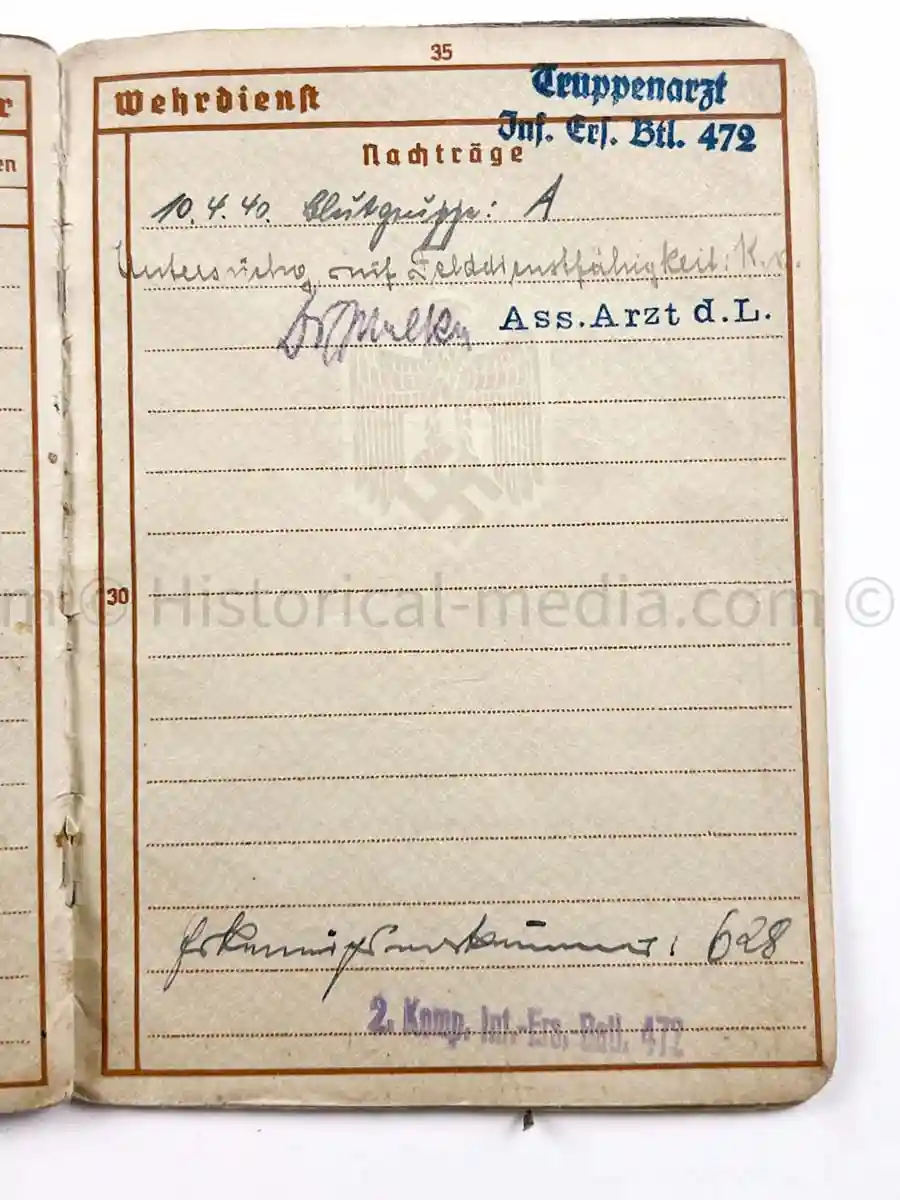 35
Wehrdienst
Truppenarzt
Inf. Ers. Btl. 472
Nachträge
10.4.40. Blutgruppe: A
Untersuchg. auf Felddienstfähigkeit: K.v.
Ass. Arzt d. L.
30
© Historical-media.com ©
628
2. Komp. Inf.-Ers.-Batl. 472
r
en